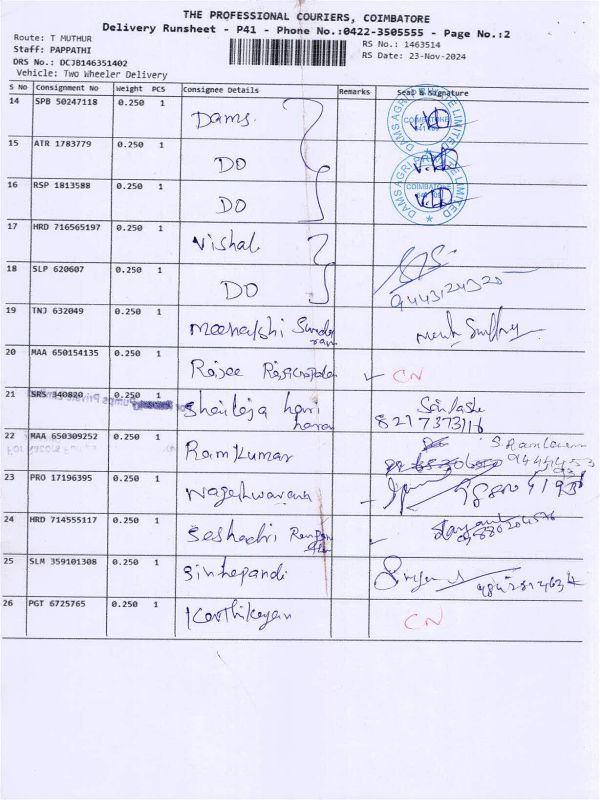 THE PROFESSIONAL COURIERS, COIMBATORE
Delivery Runsheet - P41 - Phone No.:0422-3505555 - Page No.:2
Route: T MUTHUR
RS No.: 1463514
Staff: PAPPATHI
RS Date: 23-Nov-2024
DRS No.: DCJB146351402
Vehicle: Two Wheeler Delivery
S No Consignment No Weight PCS Consignee Details Remarks Seal & Signature
14 SPB 50247118 0.250 1 Dams.
DAMS AGRI LIMITED COIMBATORE
15 ATR 1783779 0.250 1 DO
16 RSP 1813588 0.250 1 DO
DAMS AGRI LIMITED COIMBATORE
17 HRD 716565197 0.250 1 Vishal
18 SLP 620607 0.250 1 DO 9443124320
19 TNJ 632049 0.250 1 Meenakshi
20 MAA 650154135 0.250 1 Rajee CN
21 SRS 340820 0.250 1 Shaileja hari
hara 8217373116
22 MAA 650309252 0.250 1 Ramkumar
23 PRO 17196395 0.250 1 Nageshwaran
24 HRD 714555117 0.250 1 Seshadri
25 SLM 359101308 0.250 1
26 PGT 6725765 0.250 1 Karthikeyan CN